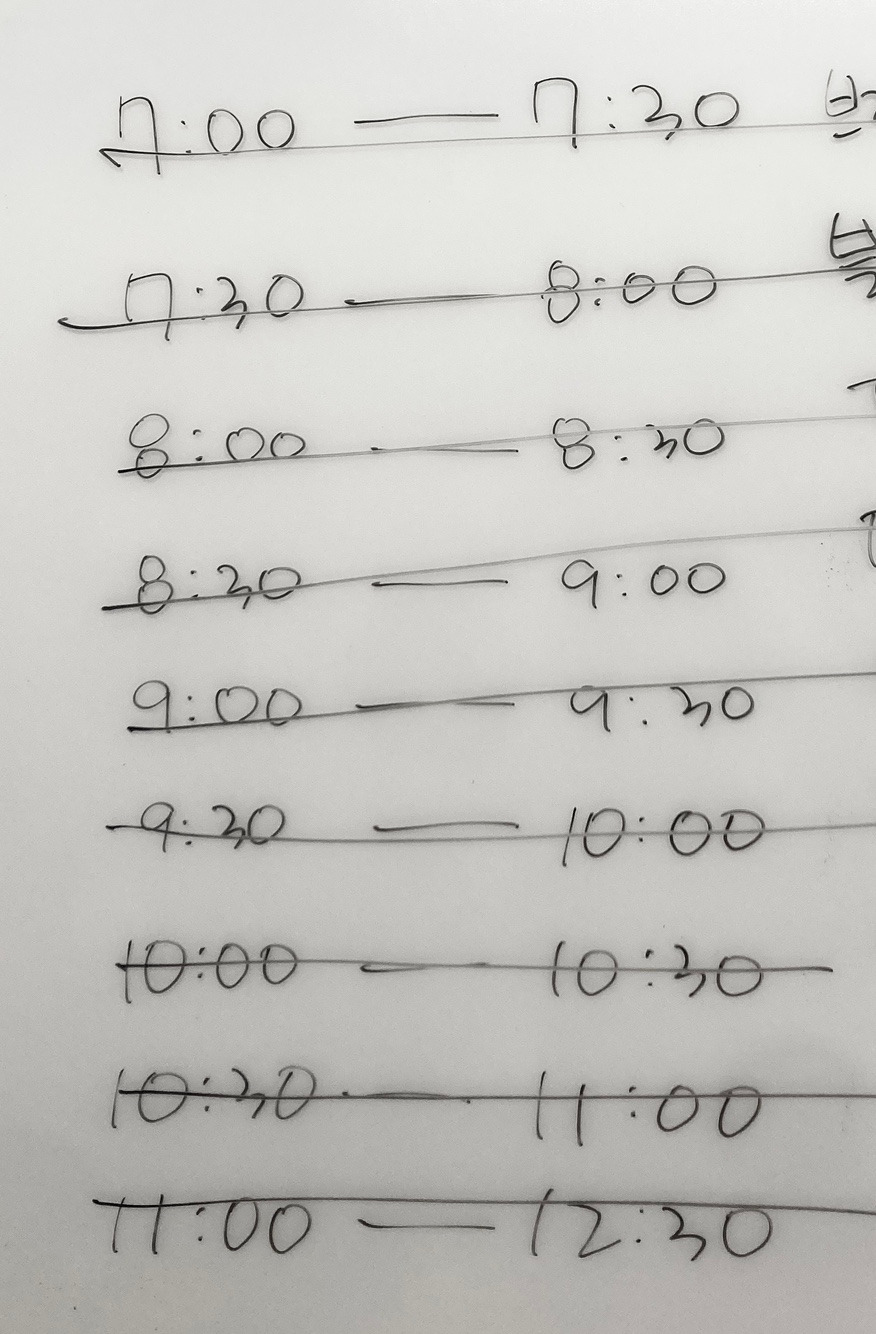 7:00 — 7:30
7:30 — 8:00
8:00 — 8:30
8:30 — 9:00
9:00 — 9:30
9:30 — 10:00
10:00 — 10:30
10:30 — 11:00
11:00 — 12:30